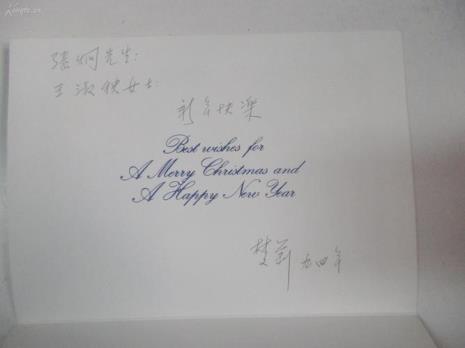 张炯先生:
王淑秧女士:
新年快樂
Best wishes for
A Merry Christmas and
A Happy New Year
九四年